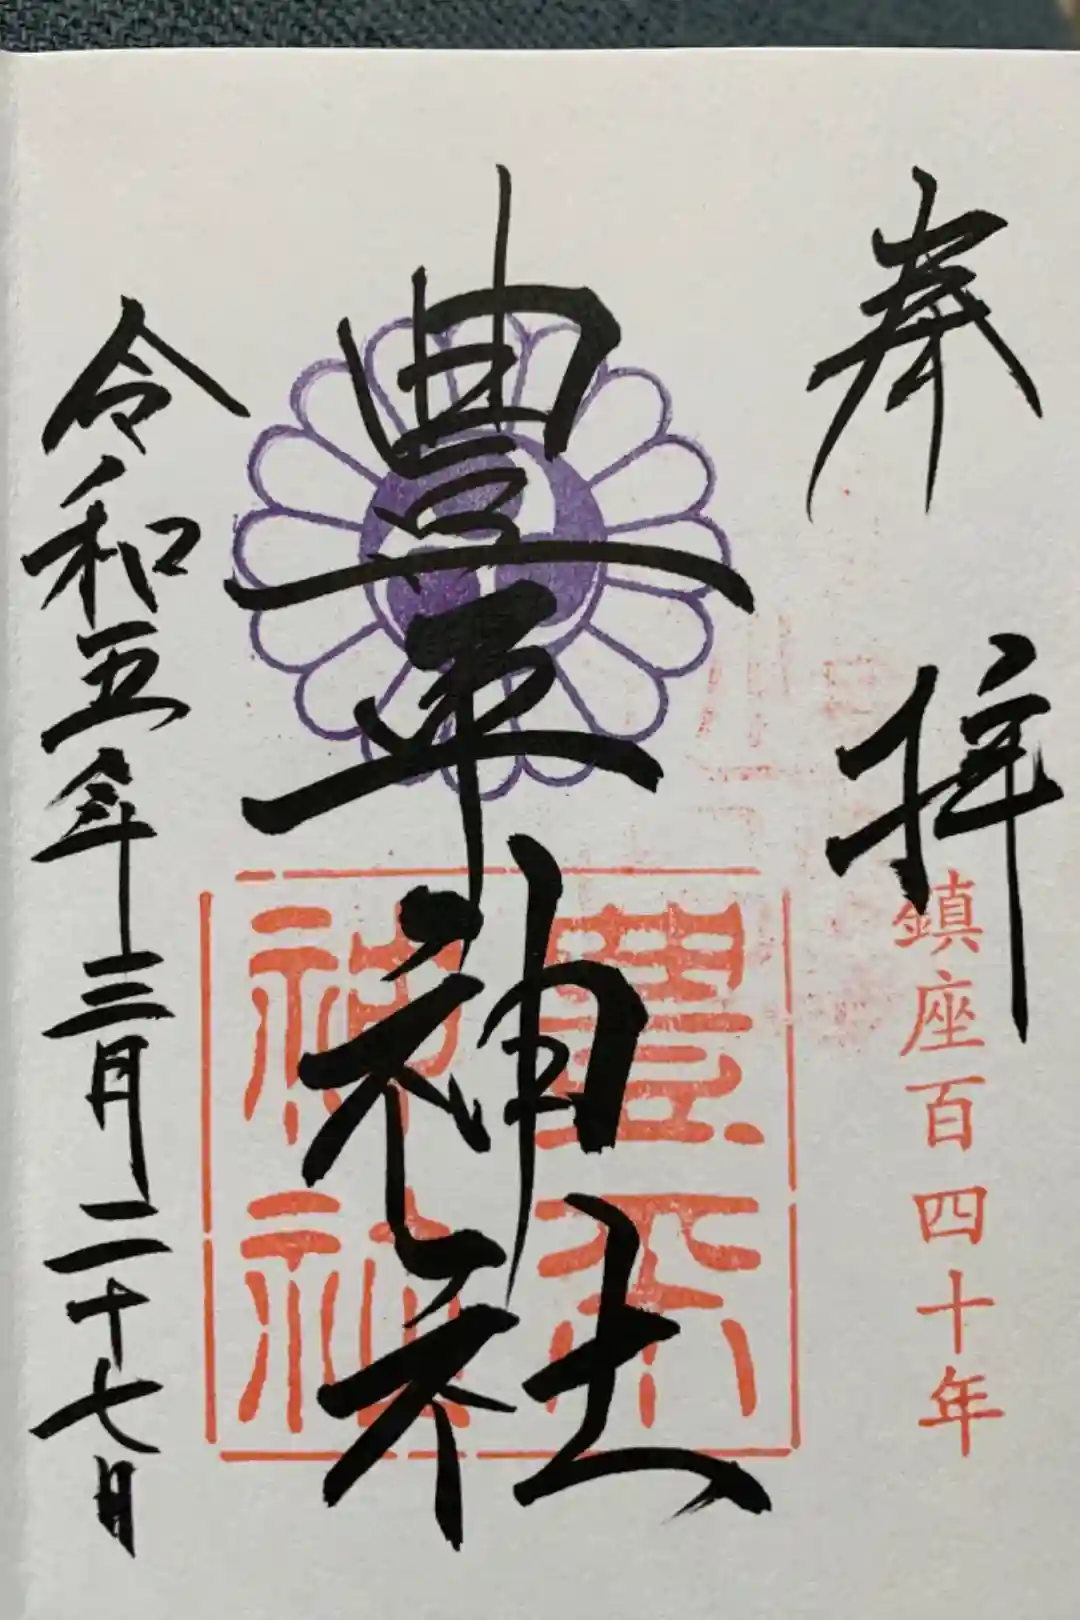 奉拝
鎮座百四十年
豊平神社
豊平
神社
令和五年三月二十七日